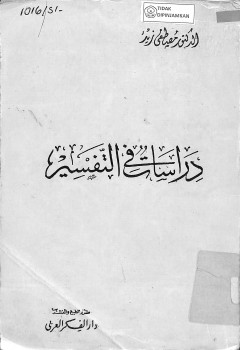 1016/SI-
TIDAK
DIPINJAMKAN
الدكتور مصطفى زيد
دراسات في التفسير
ملتزم الطبع والنشر
دار الفكر العربي